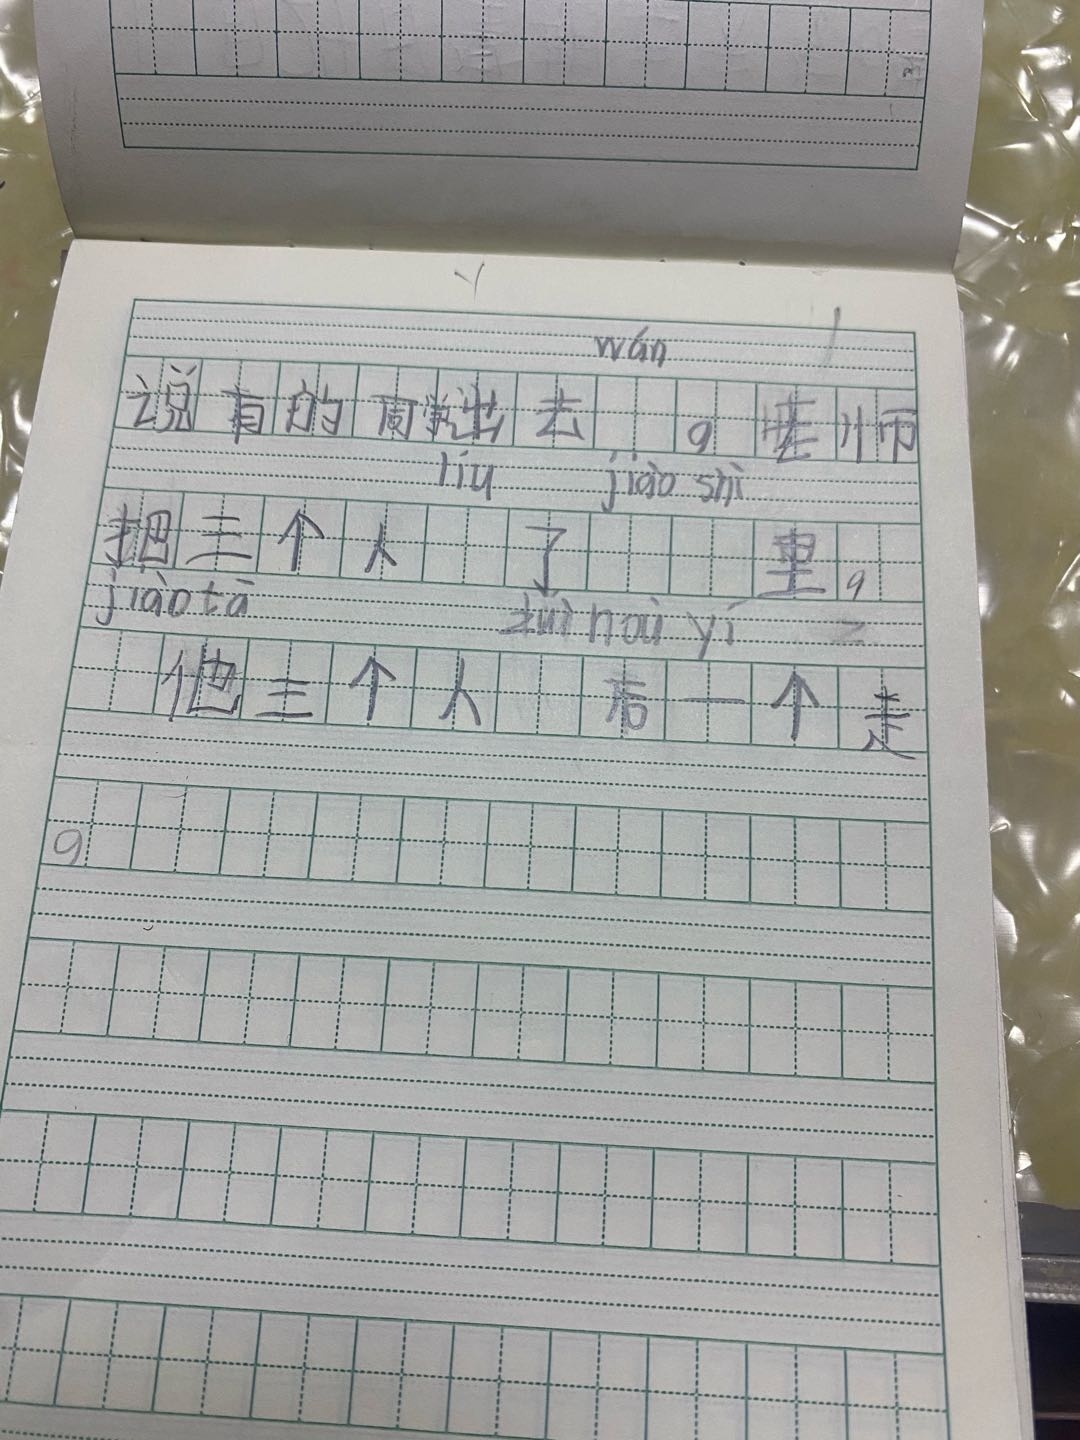 wán
说有的同就出去 ，老师
liu jiào shì
把三个人 了 里，
jiào tā zuì hoù yí
他三个人 后一个走
，